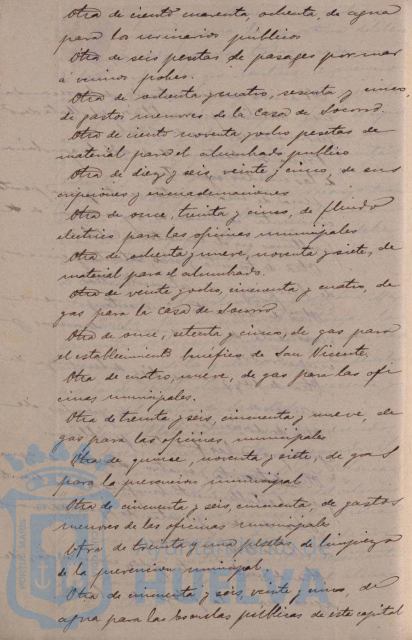 Otra de ciento cuarenta, ochenta, de agua
para los urinarios públicos
Otra de seis pesetas de pasages por mar
á varios pobres.
Otra de ochenta y cuatro, sesenta y cinco,
de gastos menores de la Casa de Socorro.
Otra de ciento noventa y ocho pesetas de
material para el alumbrado publico
Otra de diez y seis, veinte y cinco, de sus
cripciones y encuadernaciones
Otra de once, treinta y cinco, de fluido
electrico para las oficinas municipales
Otra de ochenta y nueve, noventa y siete, de
material para el alumbrado.
Otra de veinte y ocho, cincuenta y cuatro, de
gas para la Casa de Socorro
Otra de once, setenta y cinco, de gas para
el establecimiento benéfico de San Vicente.
Otra de cuatro, nueve, de gas para las ofi
cinas municipales.
Otra de treinta y seis, cincuenta y nueve, de
gas para las oficinas municipales
Otra de quince, noventa y siete, de gas
para la prevencion municipal
Otra de cincuenta y seis, cincuenta, de gastos
menores de las oficinas municipales
Otra de treinta y una pesetas, de limpieza
de la prevencion municipal
Otra de cincuenta y seis, veinte y cinco, de
agua para las escuelas públicas de esta capital
Ayuntamiento de
HUELVA